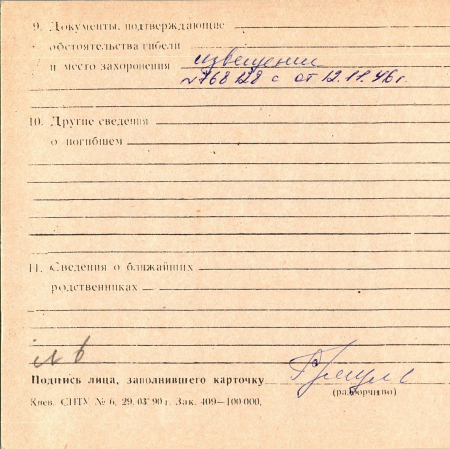 9. Документы, подтверждающие
обстоятельства гибели
и место захоронения извещение
№768128 с от 12.11.46 г.
10. Другие сведения
о погибшем
11. Сведения о ближайших
родственниках
Подпись лица, заполнившего карточку
(разборчиво)
Киев. СПТУ № 6. 29. 03' 90 г. Зак. 409—100 000.